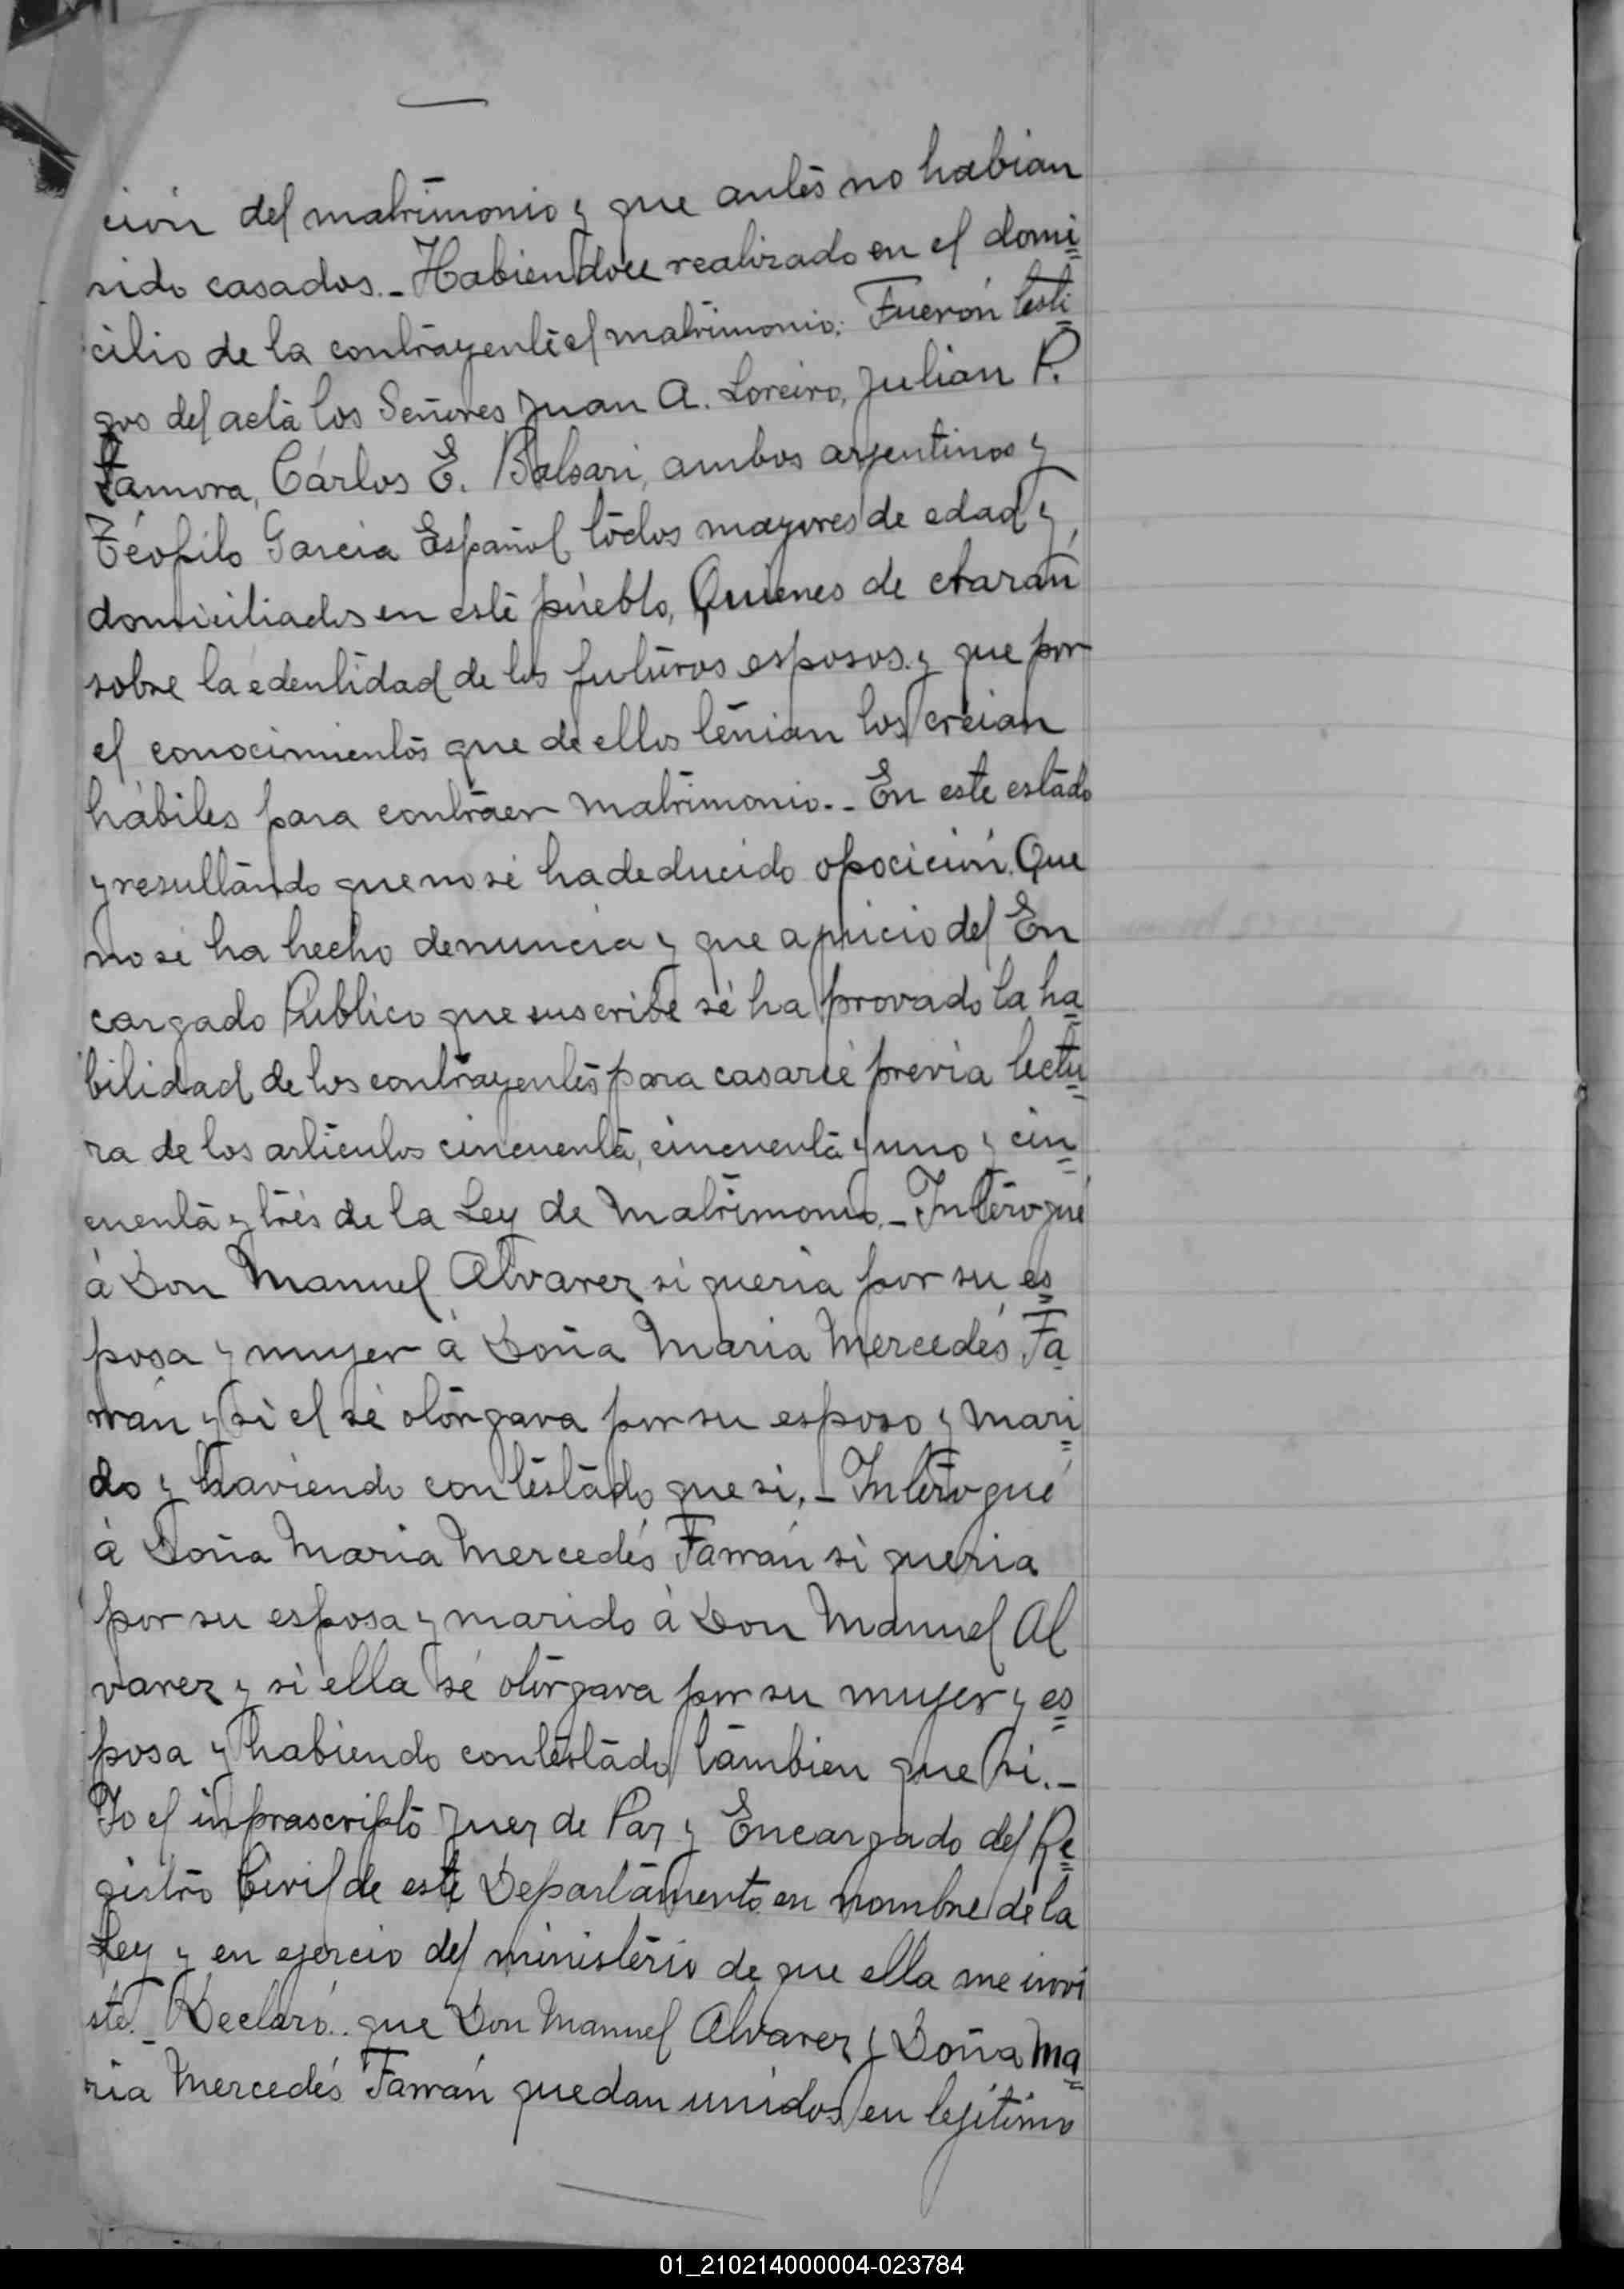 ción del matrimonio y que antes no habian
sido casados.- Habiendose realizado en el domi=
cilio de la contrayente el matrimonio. Fuerón testi=
gos del acta los Señores Juan A. Loreiro, Julian P.
Zamora, Cárlos E. Balsari, ambos argentinos y
Teófilo Garcia Español todos mayores de edad y
domiciliados en este púeblo, Quienes de clarán
sobre la edentidad de los futuros esposos y que por
el conocimientos que de ellos tenian los creian
hábiles para contraer matrimonio.- En este estado
y resultando que no se ha deducido opocición. Que
no se ha hecho denuncia y que a juicio del En
cargado Público que suscribe sé ha provado la ha=
bilidad de los contrayentes para casarse previa lectu=
ra de los articulos cincuenta, cincuenta y uno y cin=
cuenta y tres de la Ley de Matrimonio.- Interogué
á Don Manuel Alvarez si queria por su es=
posa y muger á Doña Maria Mercedes Fa=
rrán y si el sé otorgava por su esposo y mari=
do y haviendo contestado que si.- Interogué
á Doña Maria Mercedés Farrán si queria
por su esposa y marido á Don Manuel Al
varez y si ella sé otorgava por su muger y es=
posa y habiendo contestado tambien que si.-
Yo el infrascripto Juez de Paz y Encargado del Re=
gistro Civil de este Departamento en nombre de la
Ley y en ejercio del ministerio de que ella me invi
ste.- Declaró.. que Don Manuel Alvarez y Doña Ma=
ria Mercedés Farrán quedan unidos en legitimo
01_210214000004-023784